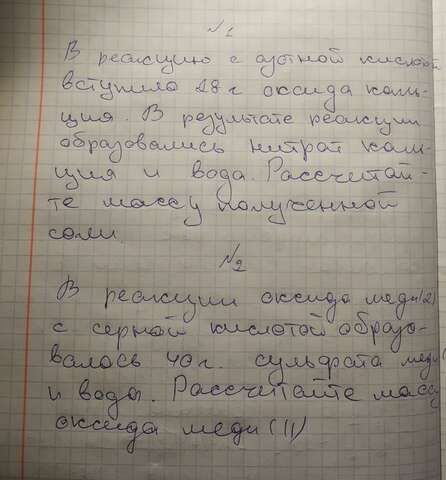 №1
В реакцию с азотной кислотой
вступило 28 г оксида каль-
ция. В результате реакции
образовались нитрат каль-
ция и вода. Рассчитай-
те массу полученной
соли.
№2
В реакции оксида меди(2)
с серной кислотой образо-
валось 40 г. сульфата меди(
и воды. Рассчитайте массу
оксида меди (II)